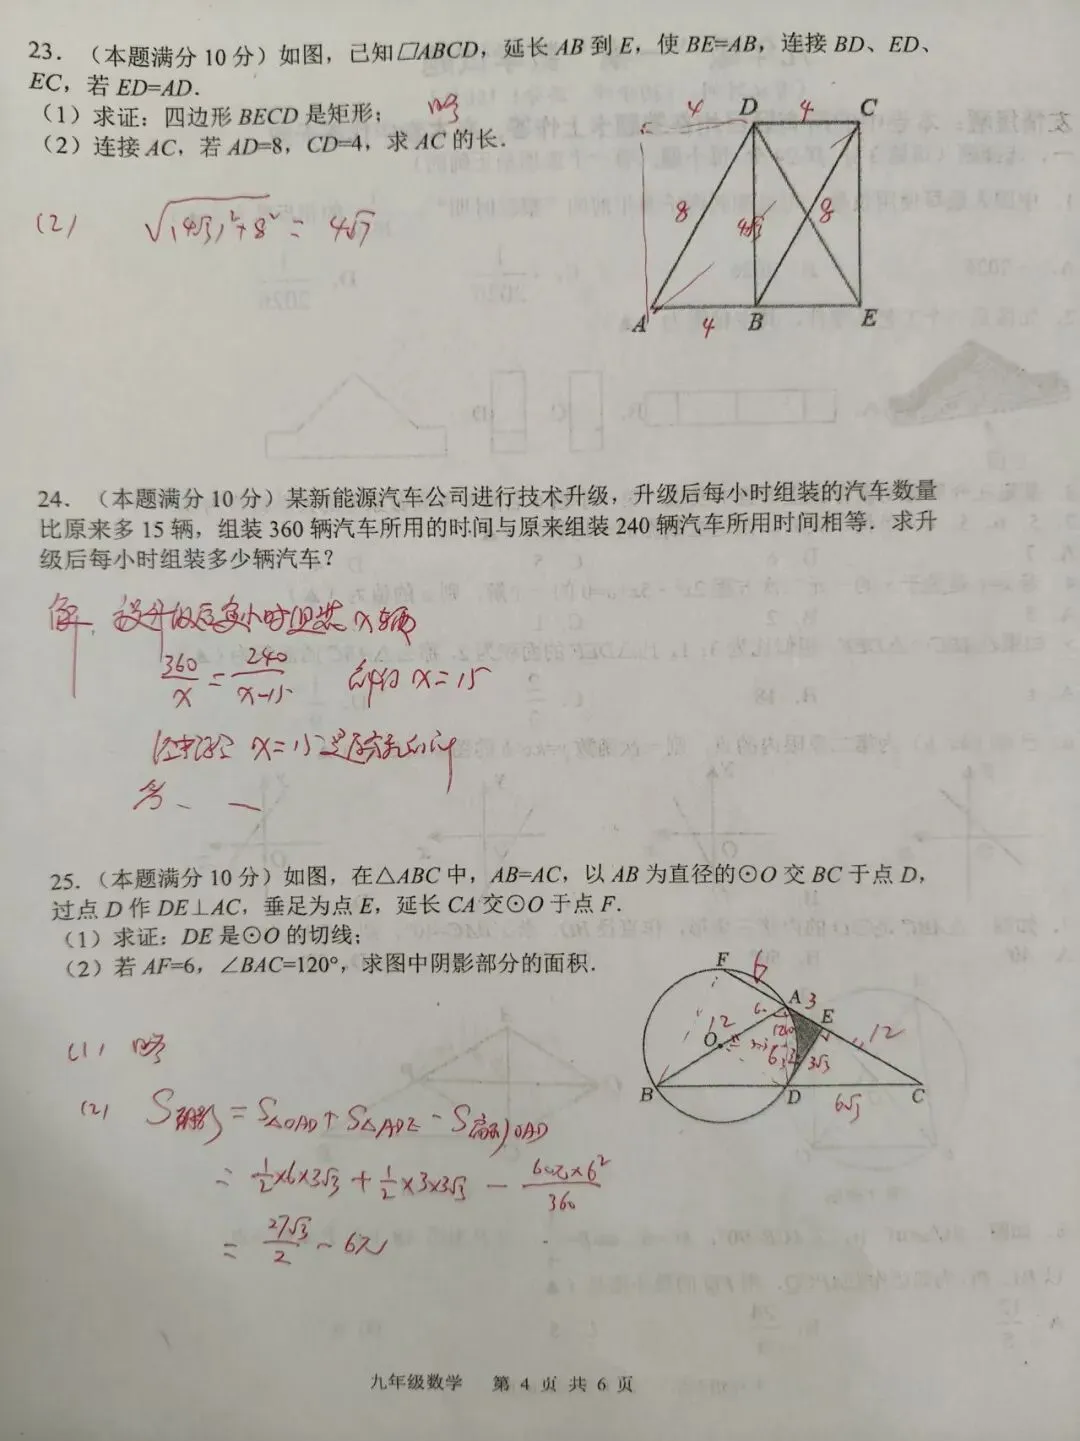 23. （本题满分 10 分）如图，已知□ABCD，延长 AB 到 E，使 BE=AB，连接 BD、ED、
EC，若 ED=AD.
（1）求证：四边形 BECD 是矩形； 略
（2）连接 AC，若 AD=8，CD=4，求 AC 的长.
(2) √(4√3)²+8² = 4√7
4 D 4 C
8 4√3 8
A 4 B E
24. （本题满分 10 分）某新能源汽车公司进行技术升级，升级后每小时组装的汽车数量
比原来多 15 辆，组装 360 辆汽车所用的时间与原来组装 240 辆汽车所用时间相等. 求升
级后每小时组装多少辆汽车？
解：设升级后每小时组装 x 辆
360/x = 240/(x-15) 解得 x=15
经检验 x=15是原方程的解
答、—
25.（本题满分 10 分）如图，在△ABC 中，AB=AC，以 AB 为直径的⊙O 交 BC 于点 D，
过点 D 作 DE⊥AC，垂足为点 E，延长 CA 交⊙O 于点 F.
（1）求证：DE 是⊙O 的切线；
（2）若 AF=6，∠BAC=120°，求图中阴影部分的面积.
F 6 A 3 E
12 O 6 3√3 12
B D 6√3 C
(1) 略
(2) S阴影 = S△OAD + S△ADE - S扇形OAD
= 1/2×6×3√3 + 1/2×3×3√3 - 60π×6²/360
= 27√3/2 - 6π
九年级数学 第 4 页 共 6 页